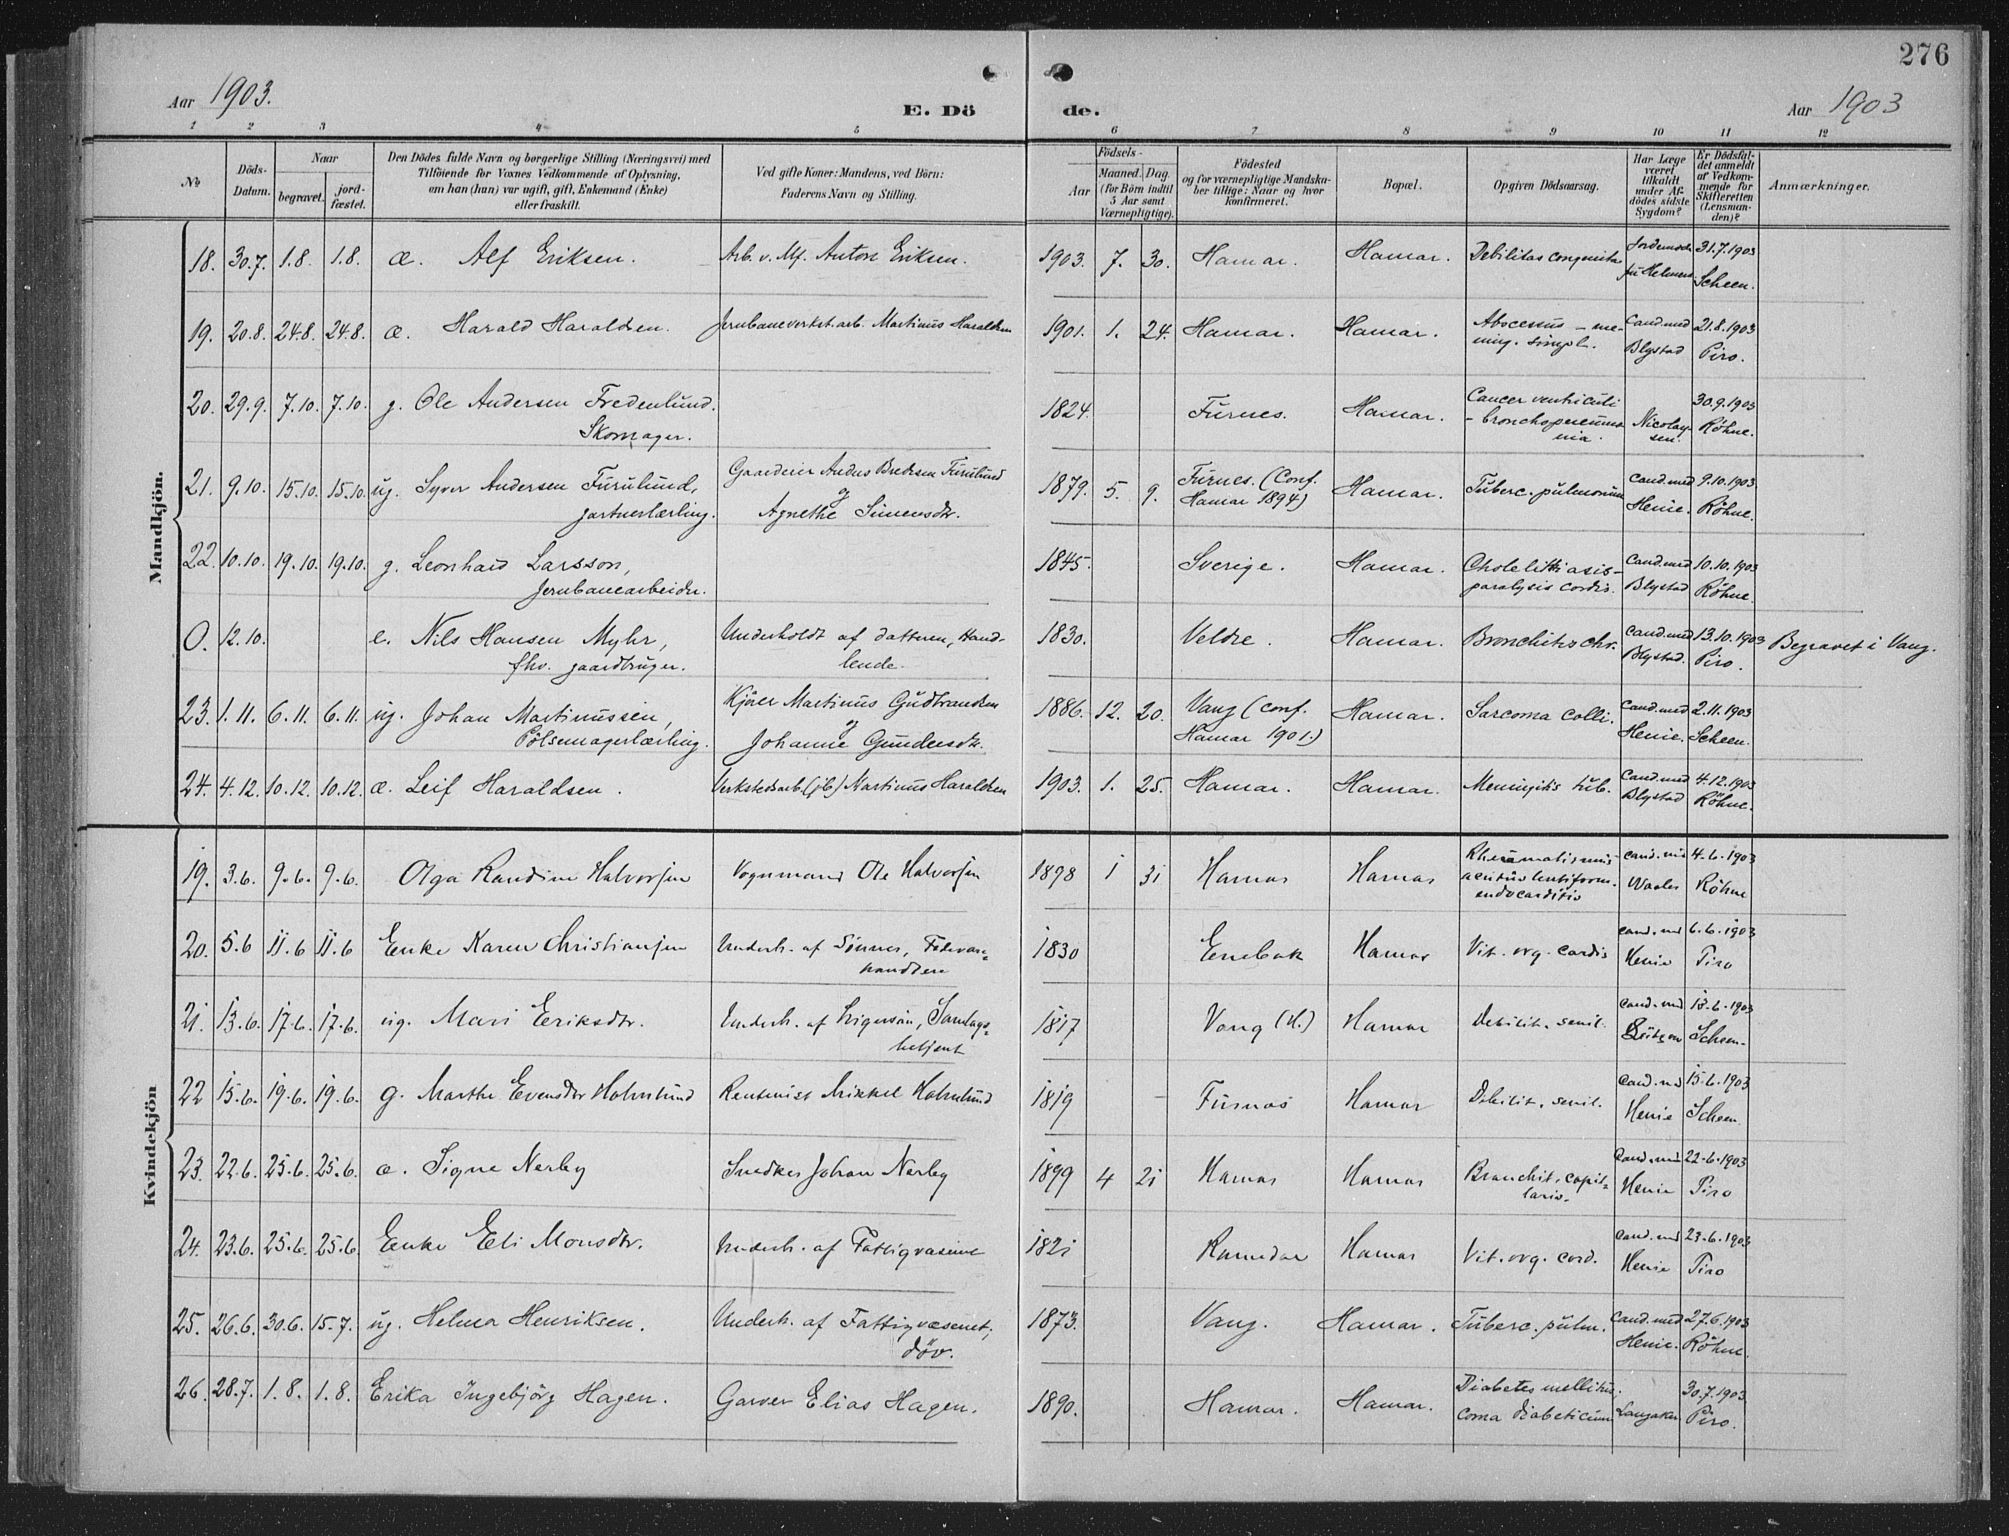 276
Aar 1903.
E. Dö de.
Aar 1903
1 2 3 4 5 6 7 8 9 10 11 12
No
Döds-Datum.
Naar
begravet.
jord-fæstet.
Den Dödes fulde Navn og borgerlige Stilling (Næringsvei) med
Tilföiende for Voxnes Vedkommende af Oplysning,
om han (hun) var ugift, gift, Enkemand (Enke)
eller fraskilt.
Ved gifte Koner: Mandens, ved Börn:
Faderens Navn og Stilling.
Födsels-
Aar
Maaned. Dag.
(for Börn indtil
5 Aar samt
Værnepligtige).
Födested
og for værnepligtige Mandska-
ber tillige: Naar og hvor
konfirmeret.
Bopæl.
Opgiven Dödsaarsag.
Har Læge
været
tilkaldt
under Af-
dödes sidste
Sygdom?
Er Dödsfal-
det anmeldt
af Vedkom-
mende for
Skifteretten
(Lensman-
den)?
Anmærkninger.
Mandkjön.
18. 30.7. 1.8. 1.8. æ. Alf Eriksen. Arb. v. Mj. Anton Eriksen. 1903. 7. 30. Hamar. Hamar. Debilitas congenita 31.7.1903
Scheen.
19. 20.8. 24.8. 24.8. æ. Harald Haraldsen. Jernbaneverkst.arb. Martinus Haraldsen 1901. 1. 24. Hamar. Hamar. Abscessus - me- Cand.med 21.8.1903
ning. simpl. Blystad Piro.
20. 29.9. 7.10. 7.10. g. Ole Andersen Fredenlund. 1824. Furnes. Hamar. Cancer ventriculi 30.9.1903
Skomager. - bronchopneumo- Nicolay- Röhne.
nia. sen.
21. 9.10. 15.10. 15.10. ug. Syver Andersen Furulund, Gaardeier Anders Bredesen Furulund 1879. 5. 9. Furnes. (Conf. Hamar. Tuberc. pulmonum Cand.med 9.10.1903
gartnerlærling. og Agnethe Simensdtr. Hamar 1894) Henie. Röhne.
22. 10.10. 19.10. 19.10. g. Leonhard Larsson, 1845. Sverige. Hamar. Cholelithiasis - Cand.med 10.10.1903
Jernbanearbeider. paralysis cordis. Blystad Röhne.
0. 12.10. e. Nils Hansen Myhr, Underholdt af datteren, Hand- 1830. Veldre. Hamar. Bronchitis chr. Cand.med 13.10.1903 Begravet i Vang.
fhv. gaardbruger. lende. Blystad. Piro.
23. 1.11. 6.11. 6.11. ug. Johan Martinussen, Kjörer Martinus Gudbrandsen 1886. 12. 20. Vang (conf. Hamar. Sarcoma colli. Cand.med 2.11.1903
Pölsemagerlærling. og Johanne Gundersdtr. Hamar 1901.) Henie. Scheen.
24. 4.12. 10.12. 10.12. æ. Leif Haraldsen. Verkstedsarb. (jb) Martinus Haraldsen 1903. 1. 25. Hamar. Hamar. Meningitis tub. Cand.med 4.12.1903
Blystad Röhne.
Kvindekjön
19. 3.6. 9.6. 9.6. Olga Randine Halvorsen Vognmand Ole Halvorsen 1898 1 31 Hamar Hamar Rheumatismus cand.med 4.6.1903
acutus Waaler Röhne
endocarditis
20. 5.6 11.6 11.6 Enke Karen Christiansen Underh. af Sönner, Fedevare- 1830 Enebak Hamar Vit. org. cordis cand.med 6.6.1903
handlere Henie Piro
21. 13.6. 17.6. 17.6. ug. Mari Eriksdtr. Underh. af 1817 Vang (H.) Hamar Debilit. senil. cand.med 13.6.1903
betjent Scheen.
22 15.6. 19.6. 19.6. g. Marthe Evensdtr Holmlund Rentenist Mikkel Holmlund 1819 Furnes Hamar Debilit. senil. cand.med 15.6.1903
Henie Scheen
23. 22.6. 25.6. 25.6. æ. Signe Nerby Snedker Johan Nerby 1899 4 21 Hamar Hamar Bronchit. capil- cand.med 22.6.1903
laris. Henie Piro
24. 23.6. 25.6. 25.6. Enke Eli Monsdtr. Underh. af Fattigvæsenet 1821 Romedal Hamar Vit. org. cord. cand.med 23.6.1903
Henie Piro
25. 26.6. 30.6. 15.7. ug. Helma Henriksen. Underh. af Fattigvæsenet, 1873. Vang. Hamar. Tuberc. pulm. Cand.med 27.6.1903
döv. Henie. Röhne.
26. 28.7. 1.8. 1.8. Erika Ingebjörg Hagen. Garver Elias Hagen. 1890. Hamar. Hamar. Diabetes mellitus, 30.7.1903
coma diabeticum Langaker Piro.